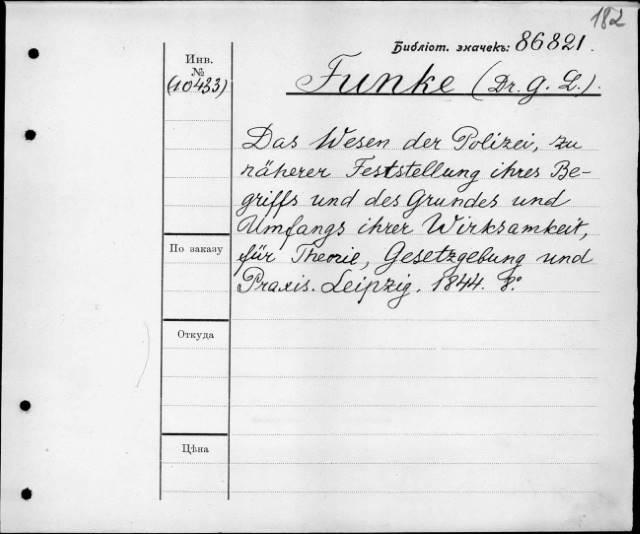 182
Библіот. значекъ: 86821.
Инв.
№
(10433)
Funke (Dr. G. L.).
Das Wesen der Polizei, zu
näherer Feststellung ihres Be-
griffs und des Grundes und
Umfangs ihrer Wirksamkeit,
für Theorie, Gesetzgebung und
Praxis. Leipzig. 1844. 8°
По заказу
Откуда
Цѣна